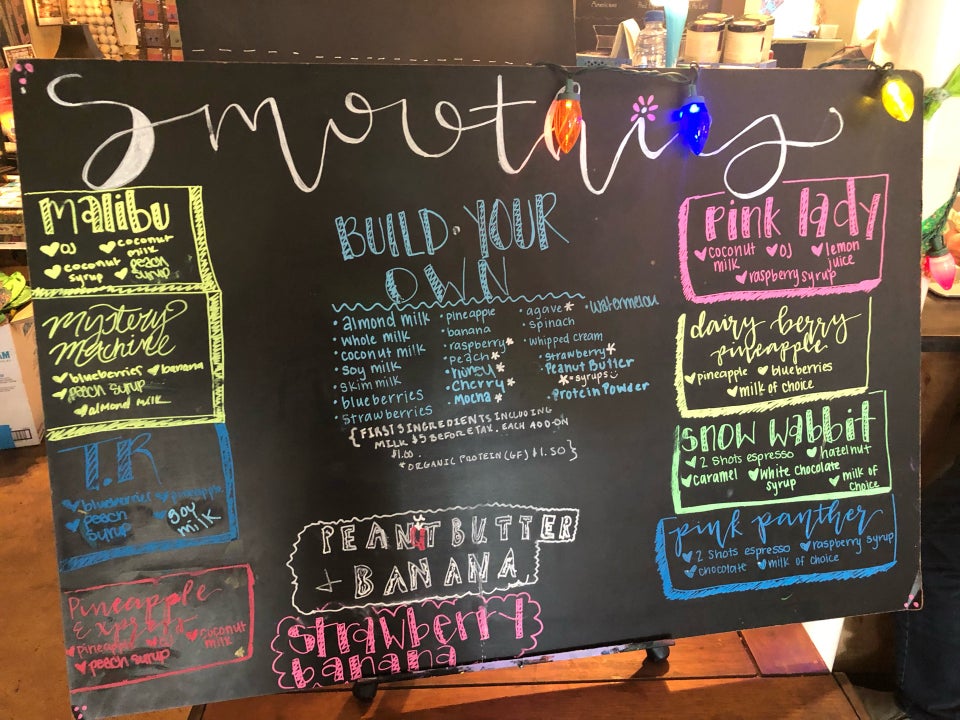 Smoothies
malibu
OJ coconut milk
coconut syrup peach syrup
mystery machine
blueberries banana
peach syrup
almond milk
T.R
blueberries pineapple
peach syrup soy milk
Pineapple Express
pineapple
coconut milk
peach syrup
BUILD YOUR
OWN
• almond milk
• whole milk
• coconut milk
• soy milk
• skim milk
• blueberries
• strawberries
• pineapple
• banana
• raspberry*
• peach*
• honey*
• cherry*
• mocha*
• agave*
• spinach
• whipped cream
• strawberry*
• Peanut Butter
*=syrups
• Protein Powder
• watermelon
{FIRST 3 INGREDIENTS INCLUDING
MILK $5 BEFORE TAX. EACH ADD-ON
$1.00.
*ORGANIC PROTEIN (GF) $1.50}
PEANUT BUTTER
+ BANANA
strawberry
banana
pink lady
coconut milk OJ lemon juice
raspberry syrup
dairy berry
pineapple
pineapple blueberries
milk of choice
snow wabbit
2 shots espresso hazelnut
caramel white chocolate syrup milk of choice
pink panther
2 shots espresso raspberry syrup
chocolate milk of choice